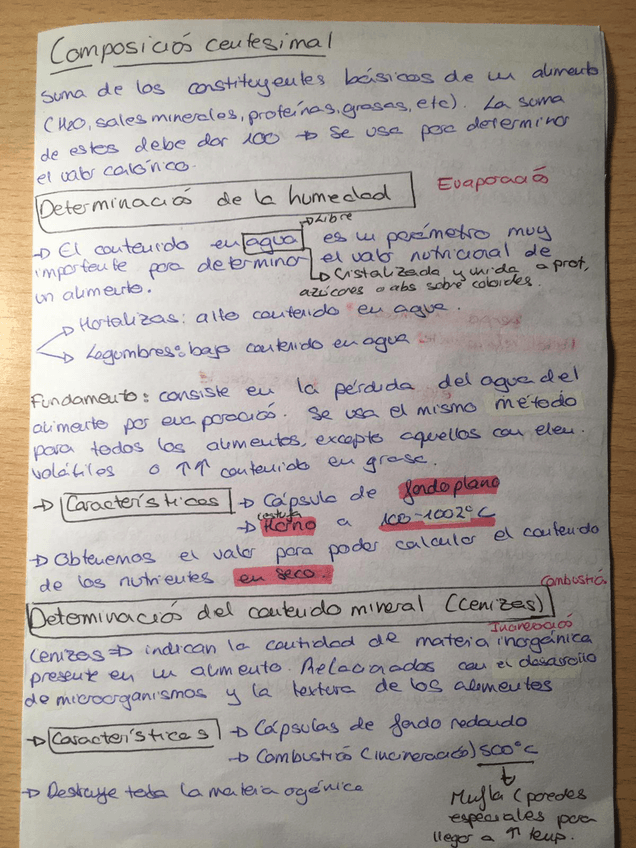 Composició centesimal
Suma de los constituyentes básicos de un alimento
(H2O, sales minerales, proteínas, grasas, etc). La suma
de estes debe dar 100 → Se usa para determinar
el valor calórico.
Determinació de la humedad
Evaporació
→ Libre
→ El contenido en agua es un parámetro muy
importante para determinar el valor nutricional de
un alimento.
↳ Cristalizada y unida a prot,
azúcares o abs sobre coloides.
→ Hortalizas: alto contenido en agua.
→ Legumbres: bajo contenido en agua
Fundamento: consiste en la pérdida del agua del
alimento por evaporació. Se usa el mismo método
para todos los alimentos, excepto aquellos con elem.
volátiles o ↑↑ contenido en grasa.
→ Características → Cápsula de fondo plano
estufa
→ Horno a 100-1002°C
→ Obtenemos el valor para poder calcular el contenido
de los nutrientes en seco.
Combustió
Determinació del contenido mineral (cenizas)
Incineració
Cenizas → indican la cantidad de materia inorgánica
presente en un alimento. Relacionados con el desarrollo
de microorganismos y la textura de los alimentos
→ Características → Cápsulas de fondo redondo
→ Combustió (incineració) 500°C
→ Destruye toda la materia ogénica
Mufla (paredes
especiales para
llegar a ↑ temp.